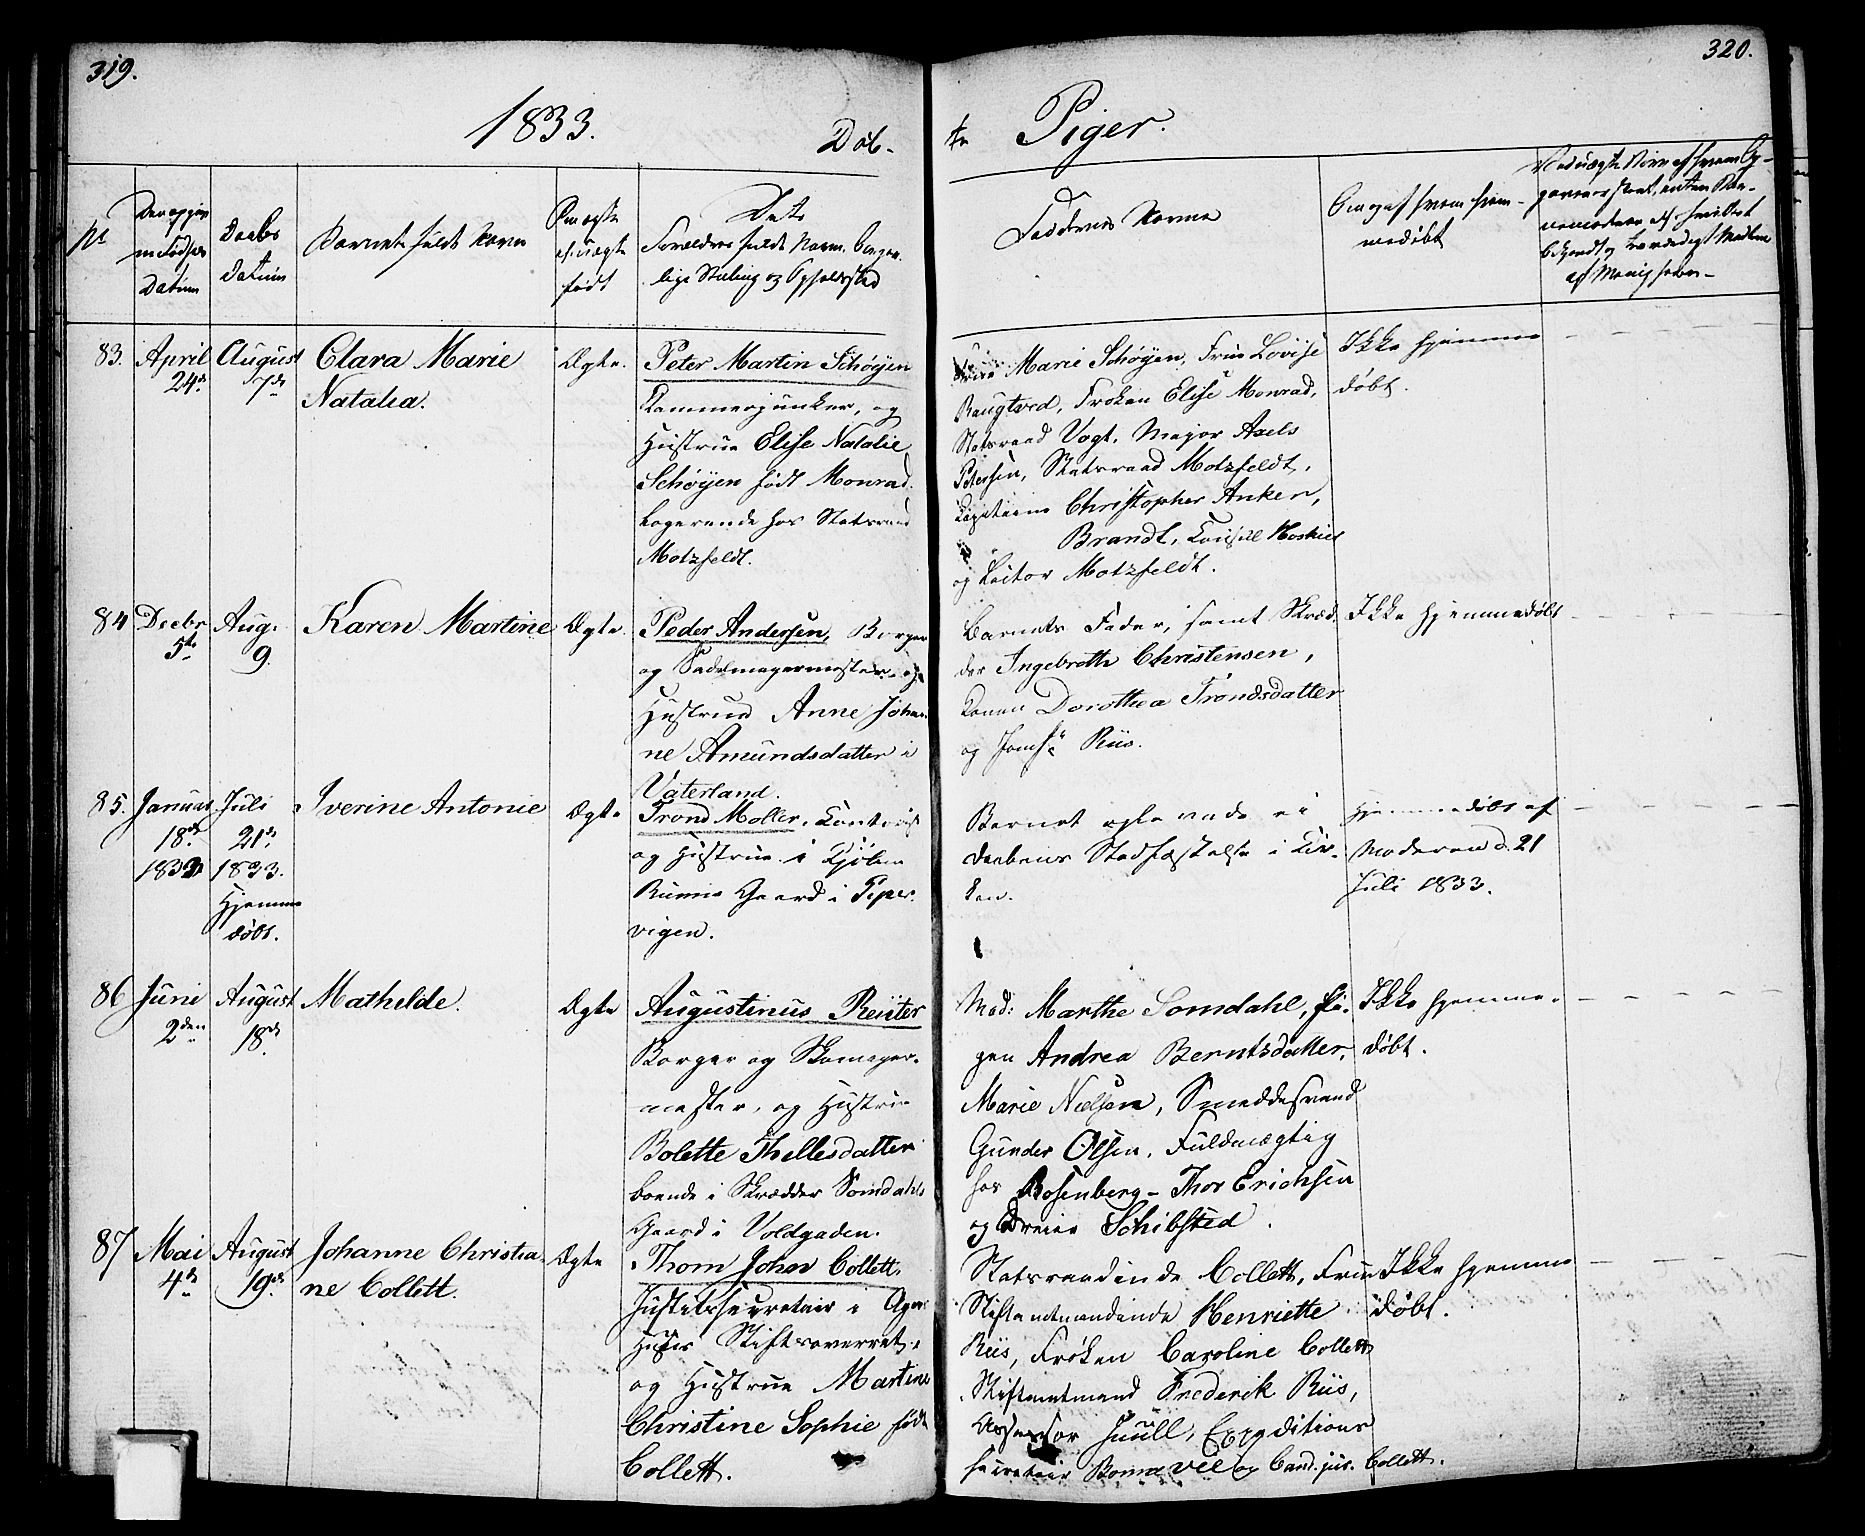 319.
320.
1833.
Døb-
te Piger.
No
Den opgiv
ne Fødsels
Datum
Daabs
Datum
Barnets fulde Navn
Om ægte
el. uægte
født
Dets
Forældres fulde Navn, borger-
lige Stilling og Opholdssted
Faddernes Navne
Om og af hvem hjem-
medøbt
af Menigheden-
83.
April
24de
August
7de
Clara Marie
Natalia.
Ægte.
Peter Martin Schøyen
Kammerjunker, og
Hustrue Elise Natalie
Schøyen født Monrad.
Logerende hos Statsraad
Motzfeldt.
Frue Marie Schøyen, Frue Lovise
Raugtved, Frøken Elise Monrad,
Statsraad Vogt, Major Axels
Petersen, Statsraad Motzfeldt,
Capitaine Christopher Anker,
Brandt, Consul
og Lector Motzfeldt.
Ikke hjemme
døbt.
84
Decbr
5te
Aug.
9.
Karen Martine
Ægte.
Peder Andersen, Borger
og Sadelmagermester, og
Hustrue Anne Johan-
ne Amundsdatter i
Vaterland.
Barnets Fader, samt Skræd-
der Ingebreth Christensen,
Konen Dorothea Trondsdatter
og Jomfr. Riis.
Ikke hjemmedøbt
85.
Januar
18de
1833
Juli
21de
1833.
Hjemme
døbt.
Iverine Antonie
Ægte
Trond Møller, Contorist
og Hustrue i Kjøbm
Rumis Gaard i Piper-
vigen.
Barnet døde inden
Daabens Stadfæstelse i Kir-
ken.
Hjemmedøbt af
Moderen d. 21
Juli 1833.
86
Juni
2den
August
18de
Mathilde.
Ægte
Augustinus Reuter
Borger og Skomager-
mester, og Hustrue
Bolette Thellesdatter
boende i Skrædder Somdahls
Gaard i Voldgaden.
Mad: Marthe Somdahl, Pi-
gen Andrea Berntsdatter,
Marie Nielsen, Smeddesvend
Gunder Olsen, Fuldmægtig
hos Rosenberg - Thor Erichsen
og Dreier Schibsted.
Ikke hjemme-
døbt.
87
Mai
4de
August
19de
Johanne Christia-
ne Collett.
Ægte
Thom Johan Collett,
Justitssecretair i Agers
Huus Stiftsoverret,
og Hustrue Martine
Christine Sophie født
Collett.
Statsraadinde Collett, Frue
Stiftamtmandinde Henriette
Riis, Frøken Caroline Collett
Stiftamtmand Frederik Riis,
Assessor Juull, Expeditions
secretair Bonnevie og Cand. jur. Collett.
Ikke hjemme
døbt.